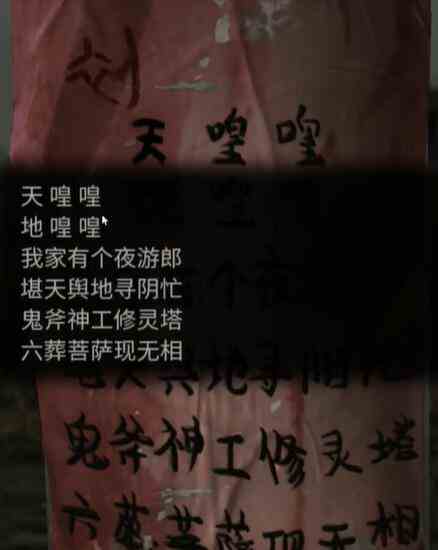 天 喤 喤
天 喤 喤
地 喤 喤
我家有个夜游郎
堪天舆地寻阴忙
鬼斧神工修灵塔
六葬菩萨现无相
鬼斧神工修灵塔
六葬菩萨现无相